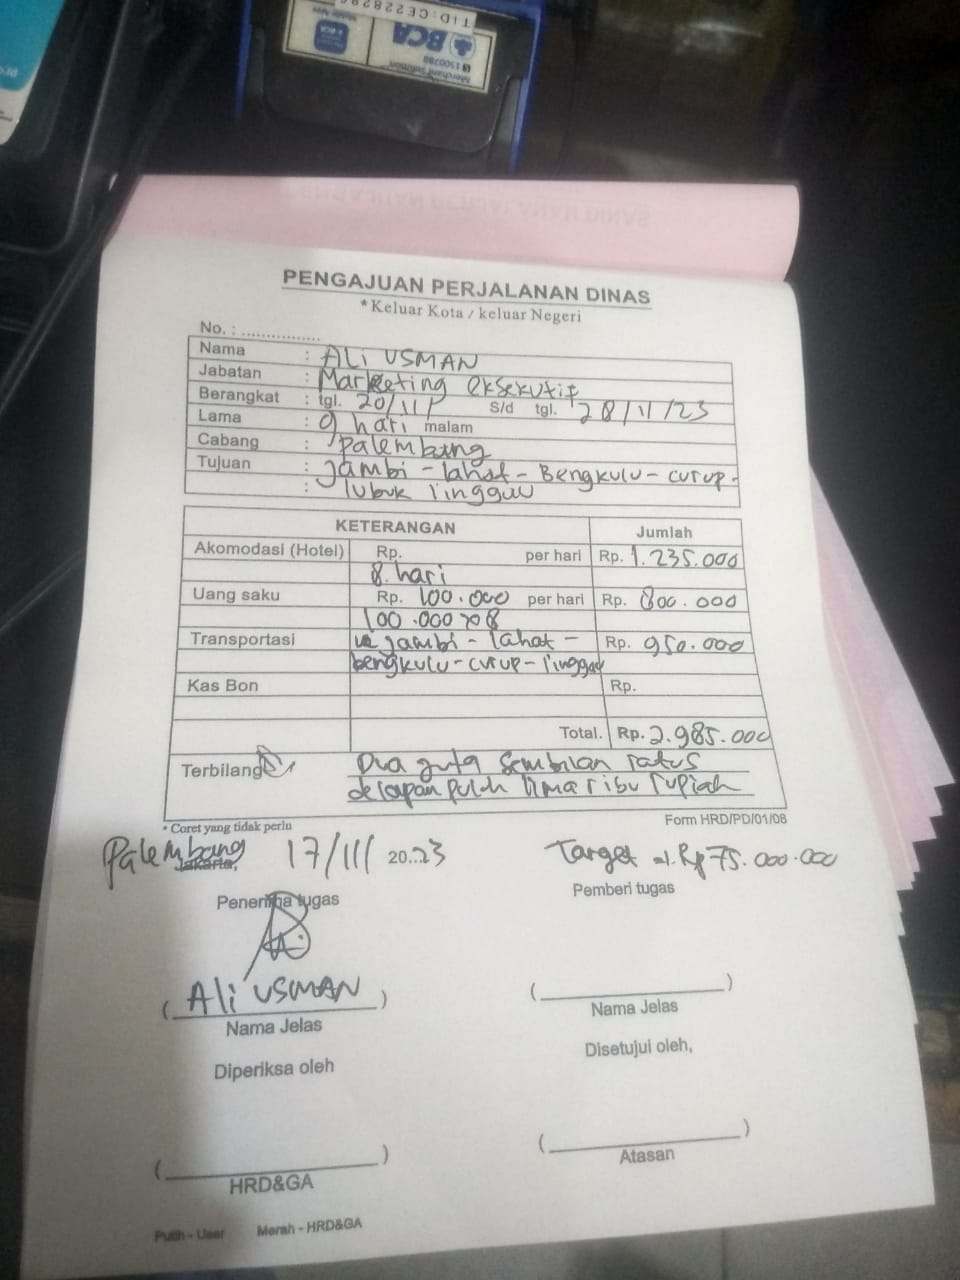 TID:CE22829
BCA
Merchant Solution
1500788
PENGAJUAN PERJALANAN DINAS
* Keluar Kota / keluar Negeri
No. : ................
Nama : ALI USMAN
Jabatan : Marketing eksekutif
Berangkat : tgl. 20/11/ S/d tgl. 28/11/23
Lama : 9 hari malam
Cabang : Palembang
Tujuan : Jambi - lahat - Bengkulu - curup -
: lubuk linggau
KETERANGAN Jumlah
Akomodasi (Hotel) Rp. per hari Rp. 1.235.000
8. hari
Uang saku Rp. 100.000 per hari Rp. 800.000
100.000 x 8
Transportasi ke jambi - lahat - Rp. 950.000
bengkulu - curup - linggau
Kas Bon Rp.
Total. Rp. 2.985.000
Terbilang Dua juta Sembilan ratus
delapan puluh lima ribu rupiah
* Coret yang tidak perlu Form HRD/PD/01/08
Palembang Jakarta, 17/11/ 20..23 Target Rp 75.000.000
Penerima tugas Pemberi tugas
( Ali USMAN ) ( )
Nama Jelas Nama Jelas
Diperiksa oleh Disetujui oleh,
( ) ( )
HRD&GA Atasan
Putih - User Merah - HRD&GA